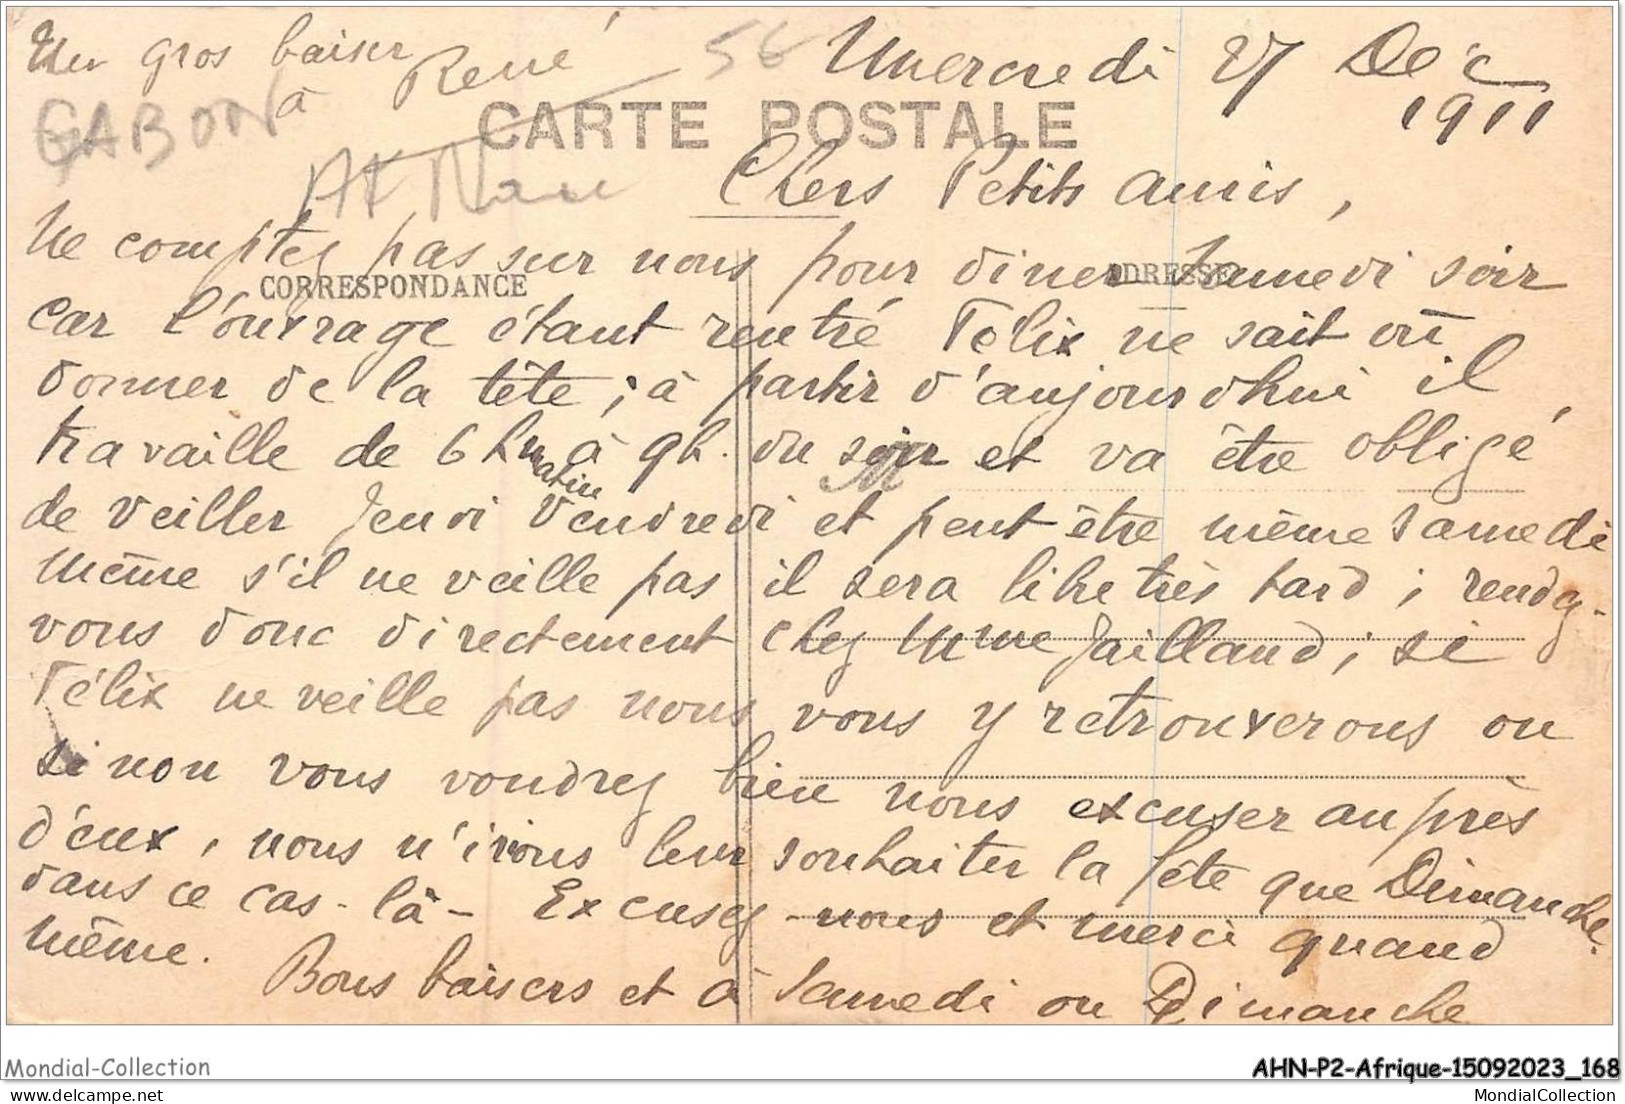 Un gros baiser
à René
56
Mercredi 27 Déc
1911
GABON
CARTE POSTALE
Chers Petits amis,
Ne comptez pas sur nous pour diner Samedi soir
CORRESPONDANCE
ADRESSE
car l'ouvrage étant rentré Félix ne sait où
donner de la tête ; à partir d'aujourdhui il
travaille de 6 h matin à 9h. du soir et va être obligé
de veiller Jeudi Vendredi et peut être même Samedi
même s'il ne veille pas il sera libre très tard ; rendez-
vous donc directement chez Mme Jailland ; si
Félix ne veille pas nous vous y retrouverons ou
si non vous voudrez bien nous excuser auprès
d'eux, nous n'irions leur souhaiter la fête que Dimanche
dans ce cas-là - Excusez-nous et merci quand
même.
Bons baisers et à Samedi ou Dimanche
Mondial-Collection
AHN-P2-Afrique-15092023_168
www.delcampe.net
MondialCollection